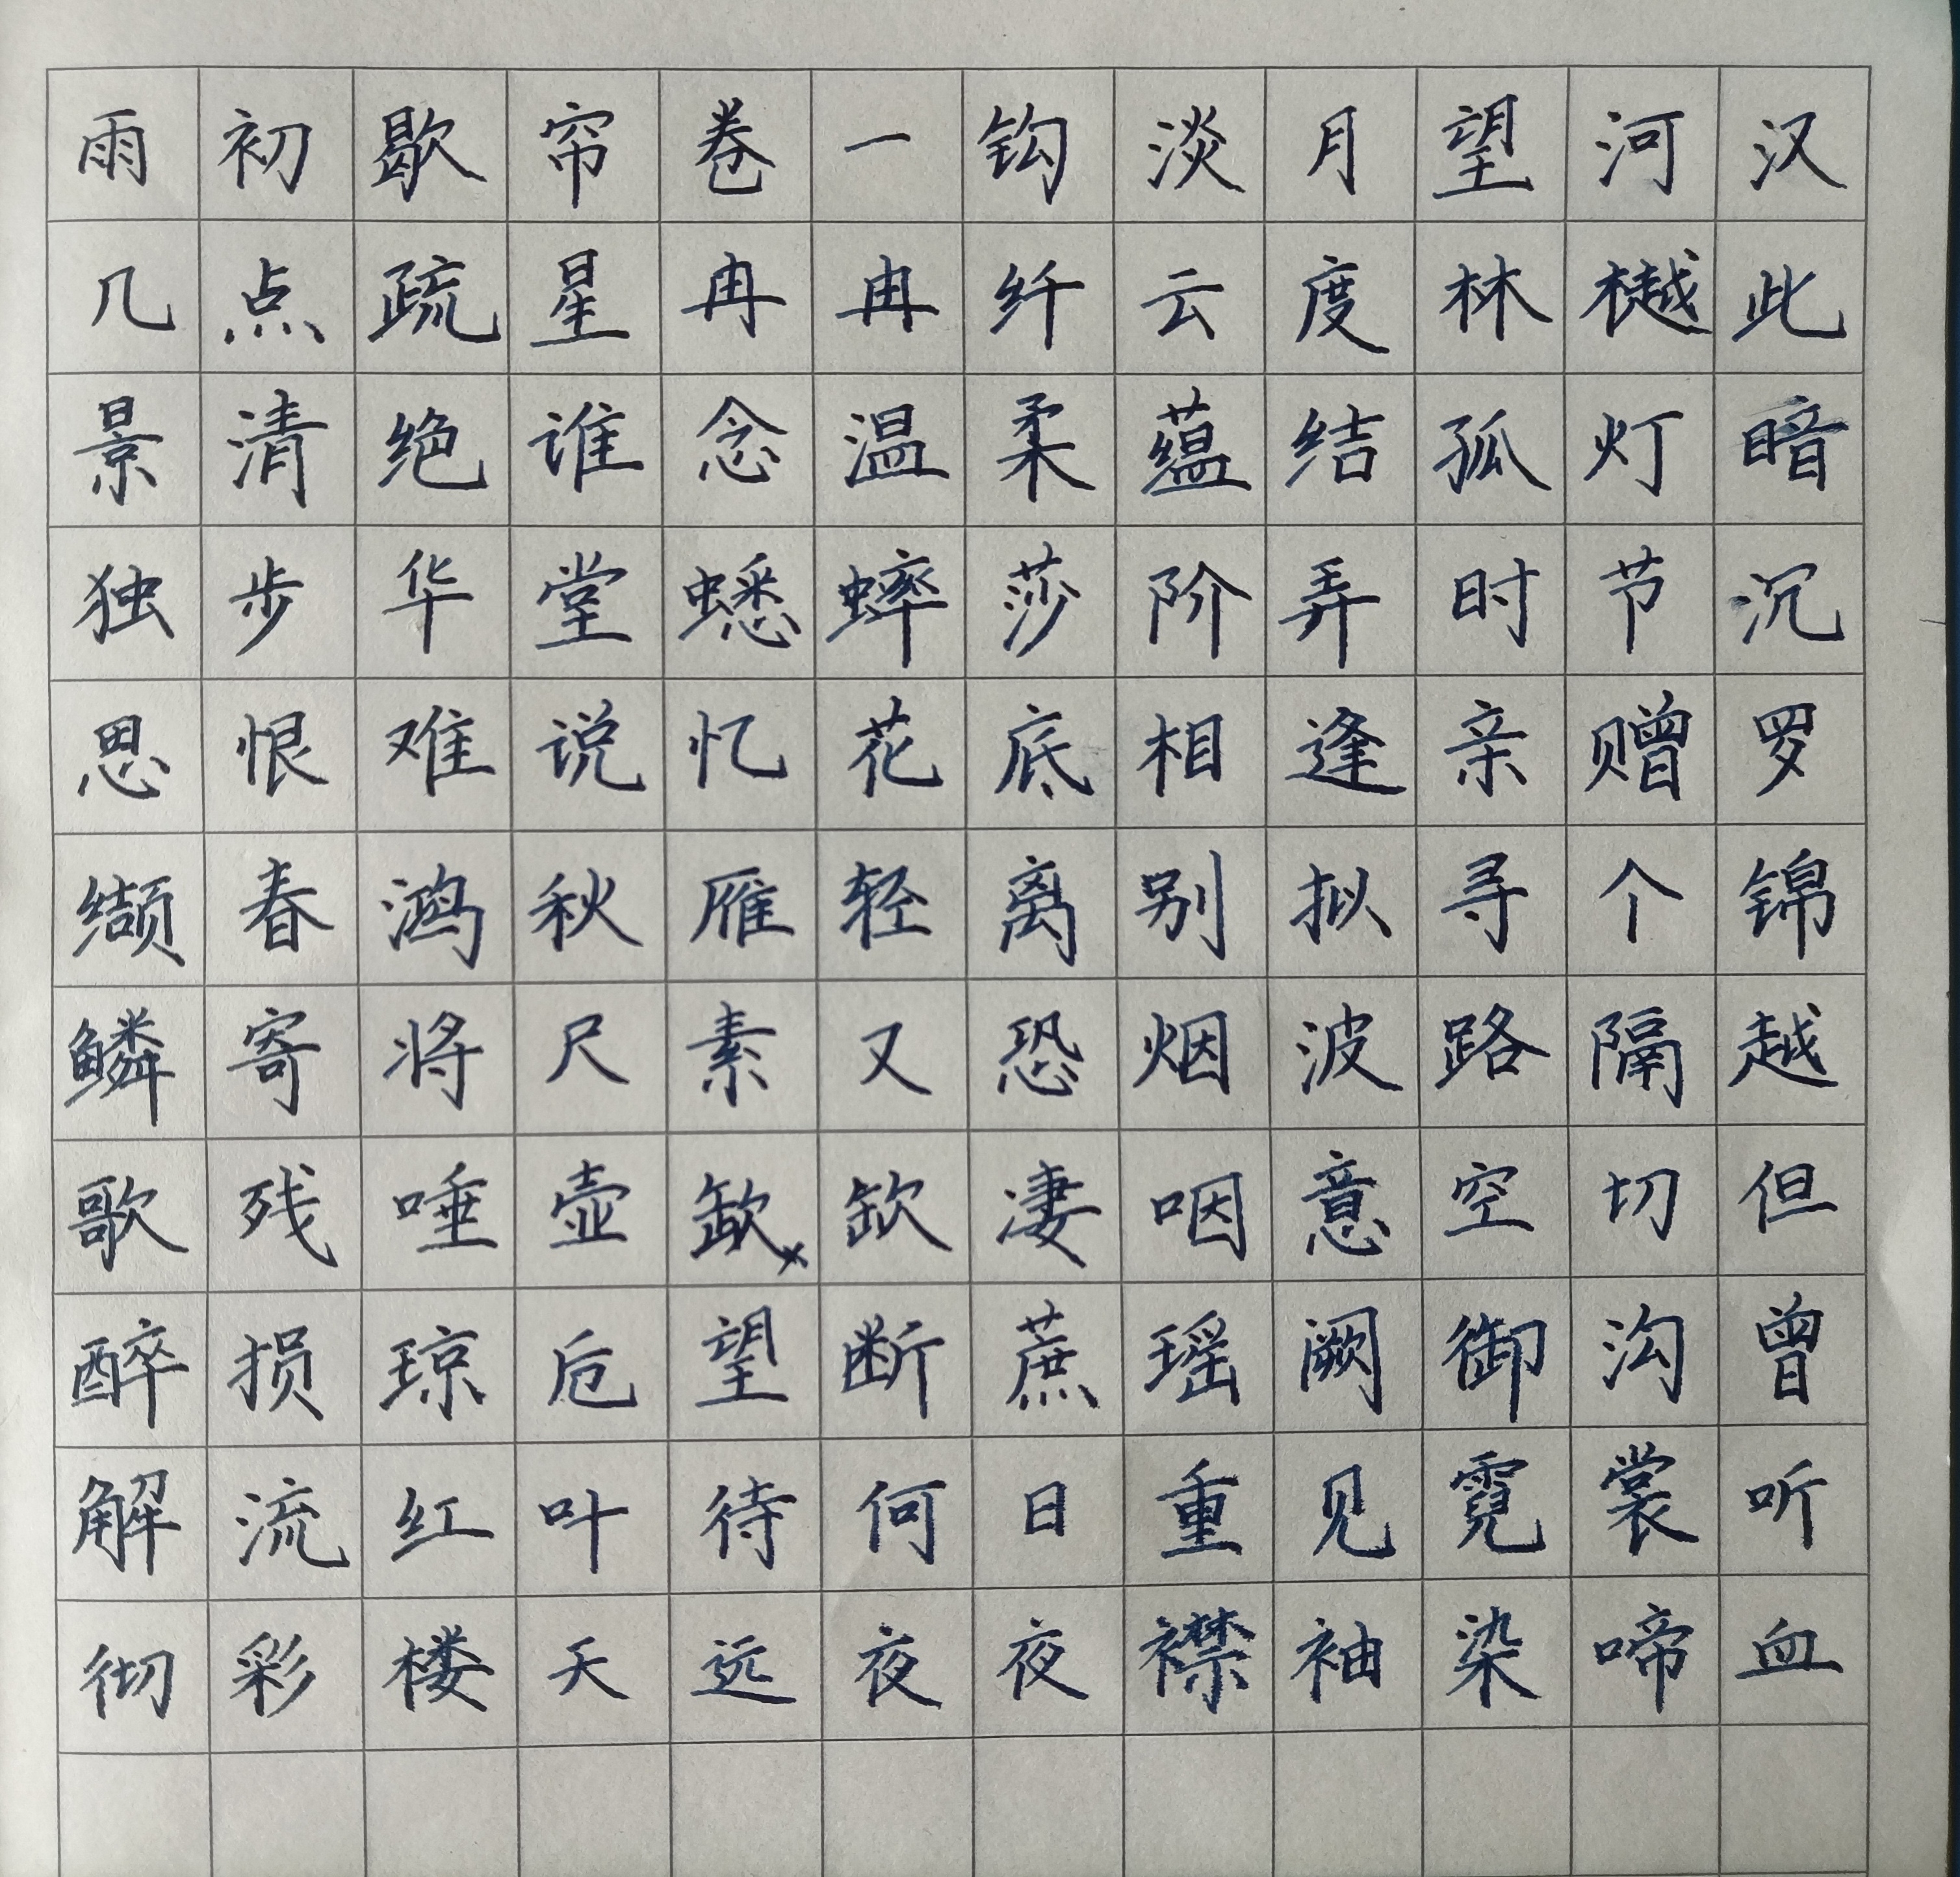 雨初歇帘卷一钩淡月望河汉
几点疏星冉冉纤云度林樾此
景清绝谁念温柔蕴结孤灯暗
独步华堂蟋蟀莎阶弄时节沉
思恨难说忆花底相逢亲赠罗
缬春鸿秋雁轻离别拟寻个锦
鳞寄将尺素又恐烟波路隔越
歌残唾壶缺欮凄咽意空切但
醉损琼卮望断蔗瑶阙御沟曾
解流红叶待何日重见霓裳听
彻彩楼天远夜夜襟袖染啼血